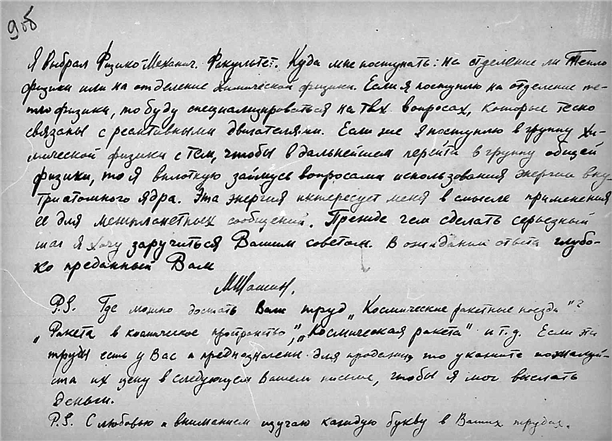 9об
Я выбрал Физико-Механич. Факультет. Куда мне поступать: на отделение ли Тепло
физики или на отделение химической физики. Если я поступлю на отделение те-
плофизики, то буду специализироваться на тех вопросах, которые тесно
связаны с реактивными двигателями. Если же я поступлю в группу хи-
мической физики с тем, чтобы в дальнейшем перейти в группу общей
физики, то я вплотную займусь вопросами использования энергии вну
триатомного ядра. Эта энергия интересует меня в смысле применения
ее для межпланетных сообщений. Прежде чем сделать серьезный
шаг я хочу заручиться Вашим советом. В ожидании ответа глубо-
ко преданный Вам
P.S. Где можно достать Ваш труд „Космические ракетные поезда"?
„Ракета в космическое пространство", „Космическая ракета" и т.д. Если эти
труды есть у Вас и предназначены для продажи, то укажите пожалуй-
ста их цену в следующем Вашем письме, чтобы я мог выслать
деньги.
P.S. С любовью и вниманием изучаю каждую букву в Ваших трудах.